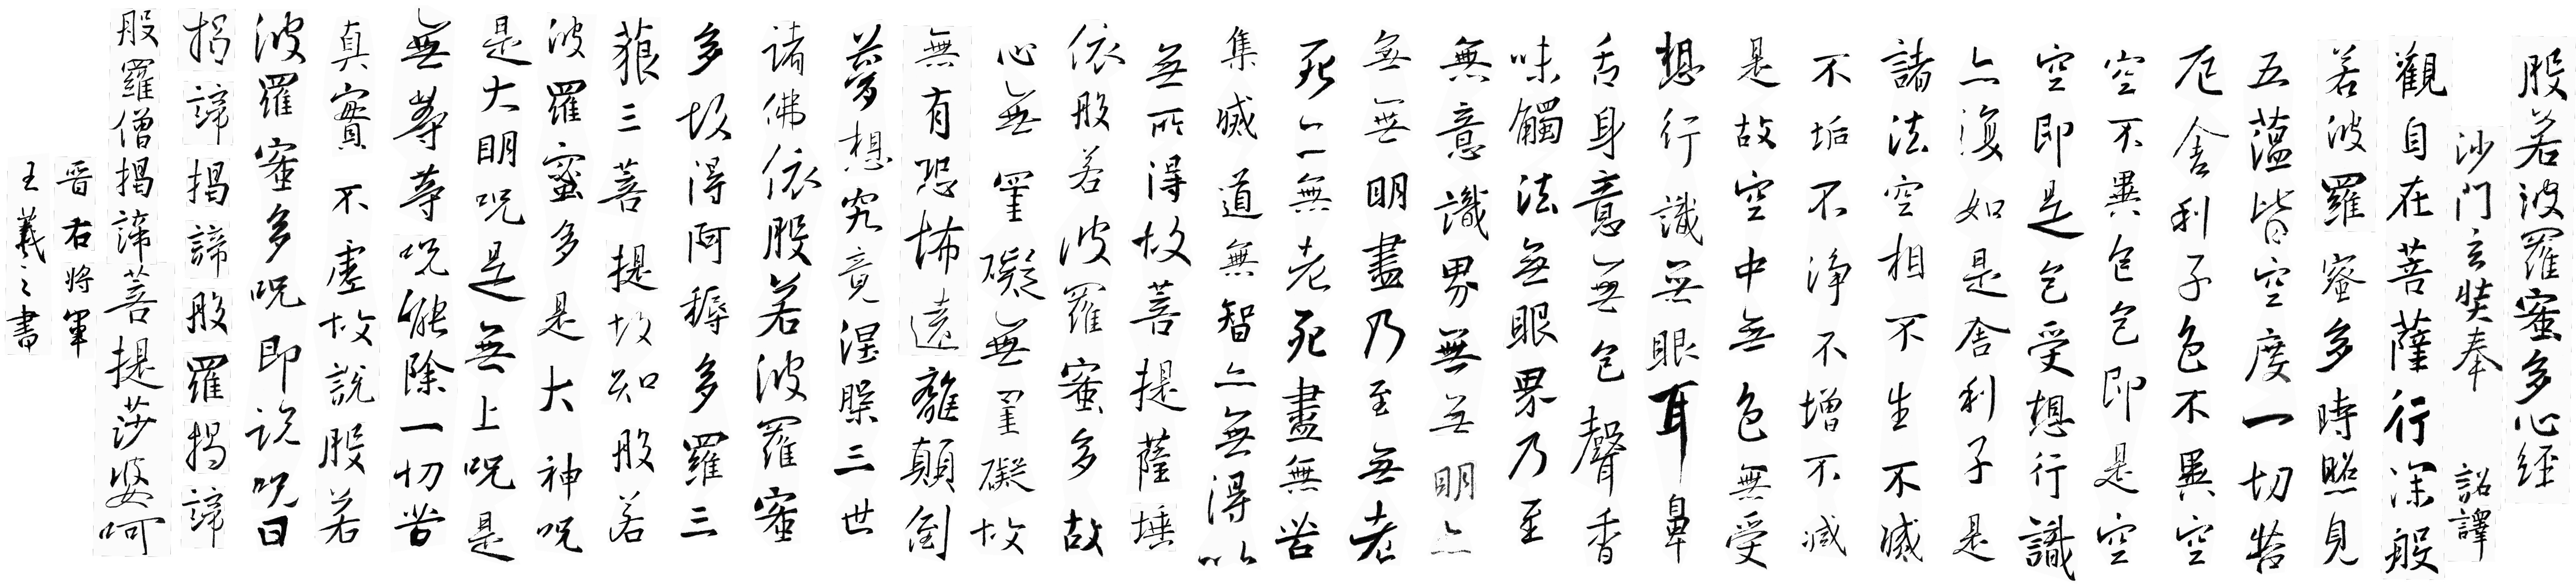 般若波羅蜜多心経
沙門玄奘奉 詔譯
觀自在菩薩行深般
若波羅蜜多時照見
五蘊皆空度一切苦
厄舍利子色不異空
空不異色色即是空
空即是色受想行識
亦復如是舍利子是
諸法空相不生不滅
不垢不淨不增不減
是故空中無色無受
想行識無眼耳鼻
舌身意無色聲香
味觸法無眼界乃至
無意識界無無明亦
無無明盡乃至無老
死亦無老死盡無苦
集滅道無智亦無得以
無所得故菩提薩埵
依般若波羅蜜多故
心無罣礙無罣礙故
無有恐怖遠離顛倒
夢想究竟涅槃三世
諸佛依般若波羅蜜
多故得阿耨多羅三
藐三菩提故知般若
波羅蜜多是大神咒
是大明咒是無上咒是
無等等咒能除一切苦
真實不虛故說般若
波羅蜜多咒即說咒曰
揭諦揭諦般羅揭諦
般羅僧揭諦菩提莎婆呵
晉右將軍
王羲之書